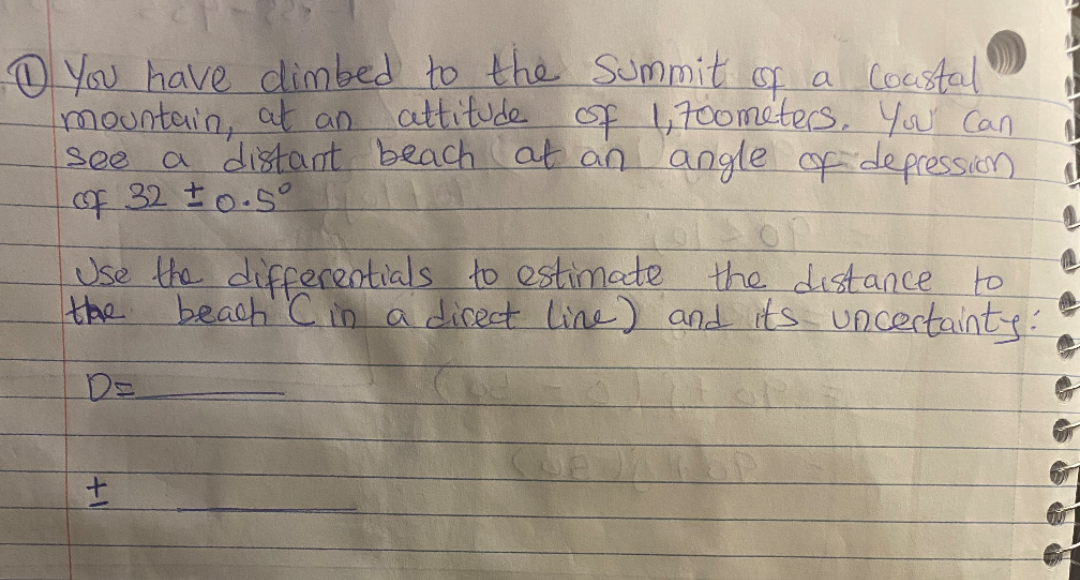 ① You have climbed to the summit of a coastal
mountain, at an attitude of 1,700meters. You can
see a distant beach at an angle of depression
of 32 ± 0.5°
Use the differentials to estimate the distance to
the beach (in a direct line) and its uncertainty:
D=
±